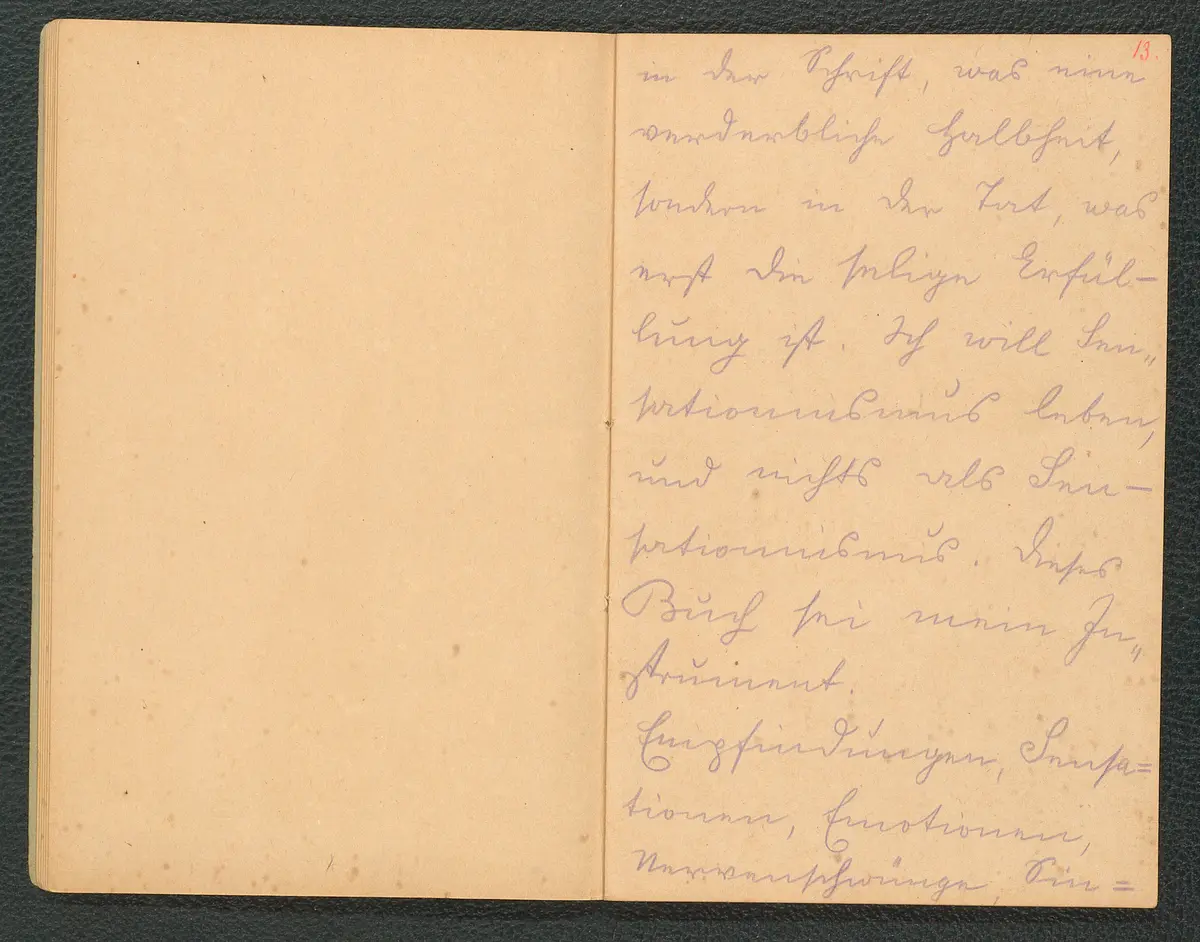 13.
in der Schrift, was eine
verderbliche Halbheit,
sondern in der Tat, was
erst die selige Erfül-
lung ist. Ich will Sen„
sationnismus leben,
und nichts als Sen-
sationnismus. Dieses
Buch sei mein In„
strument.
Empfindungen, Sensa=
tionen, Emotionen,
Nervenschwünge, Sin=